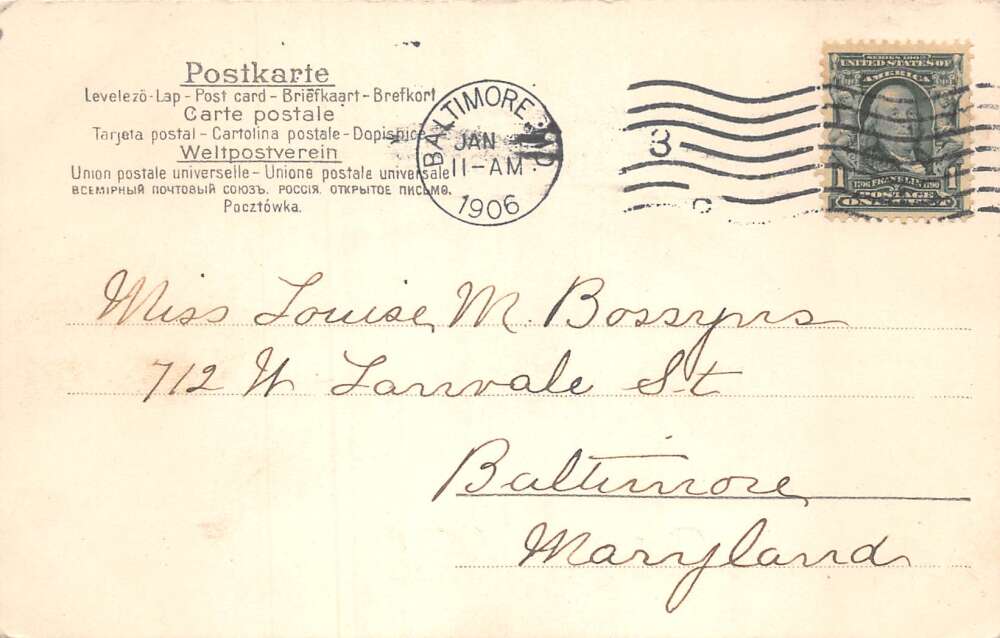 Postkarte
Levelező-Lap - Post card - Briefkaart - Brefkort
Carte postale
Tarjeta postal - Cartolina postale - Dopisnice
Weltpostverein
Union postale universelle - Unione postale universale
ВСЕМІРНЫЙ ПОЧТОВЫЙ СОЮЗЪ. РОССІЯ. ОТКРЫТОЕ ПИСЬМО.
Pocztówka.
BALTIMORE, MD.
JAN
11-AM
1906
3
SERIES 1902
UNITED STATES OF
AMERICA
1706 FRANKLIN 1790
1 POSTAGE 1
ONE CENT
Miss Louise M. Bossyns
712 W Lanvale St
Baltimore
Maryland